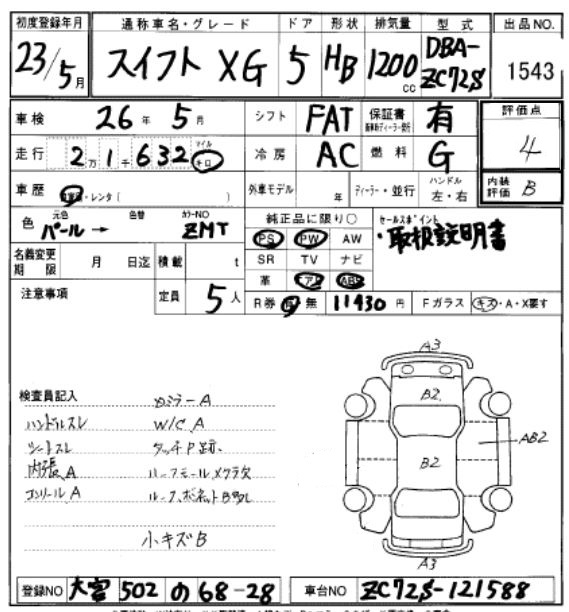 初度登録年月 通称車名・グレード ドア 形状 排気量 型式 出品NO.
23/5月 スイフト XG 5 HB 1200cc DBA-ZC72S 1543
車検 26年 5月 シフト FAT 保証書 有 評価点 4
走行 2万1千632 マイル キロ 冷房 AC 燃料 G
車歴 ・レンタ( ) 外車モデル 年 ディーラー・並行 ハンドル 左・右 内装評価 B
色 元色 パール → 色替 カラーNO ZMT 純正品に限り○ セールスポイント
PS PW AW ・取扱説明書
名義変更期限 月 日迄 積載 t SR TV ナビ
革 エアB ABS
注意事項 定員 5人 R券 有 無 11430円 Fガラス キズ・A・X要す
A3
検査員記入 カミラーA B2
ハンドルスレ W/C A
シートスレ タッチP跡. AB2
内張A ルーフモールメクラ欠 B2
コンソールA ルーフ、ボネットB多し
小キズB
A3
登録NO 大宮 502 の 68-28 車台NO ZC72S-121588